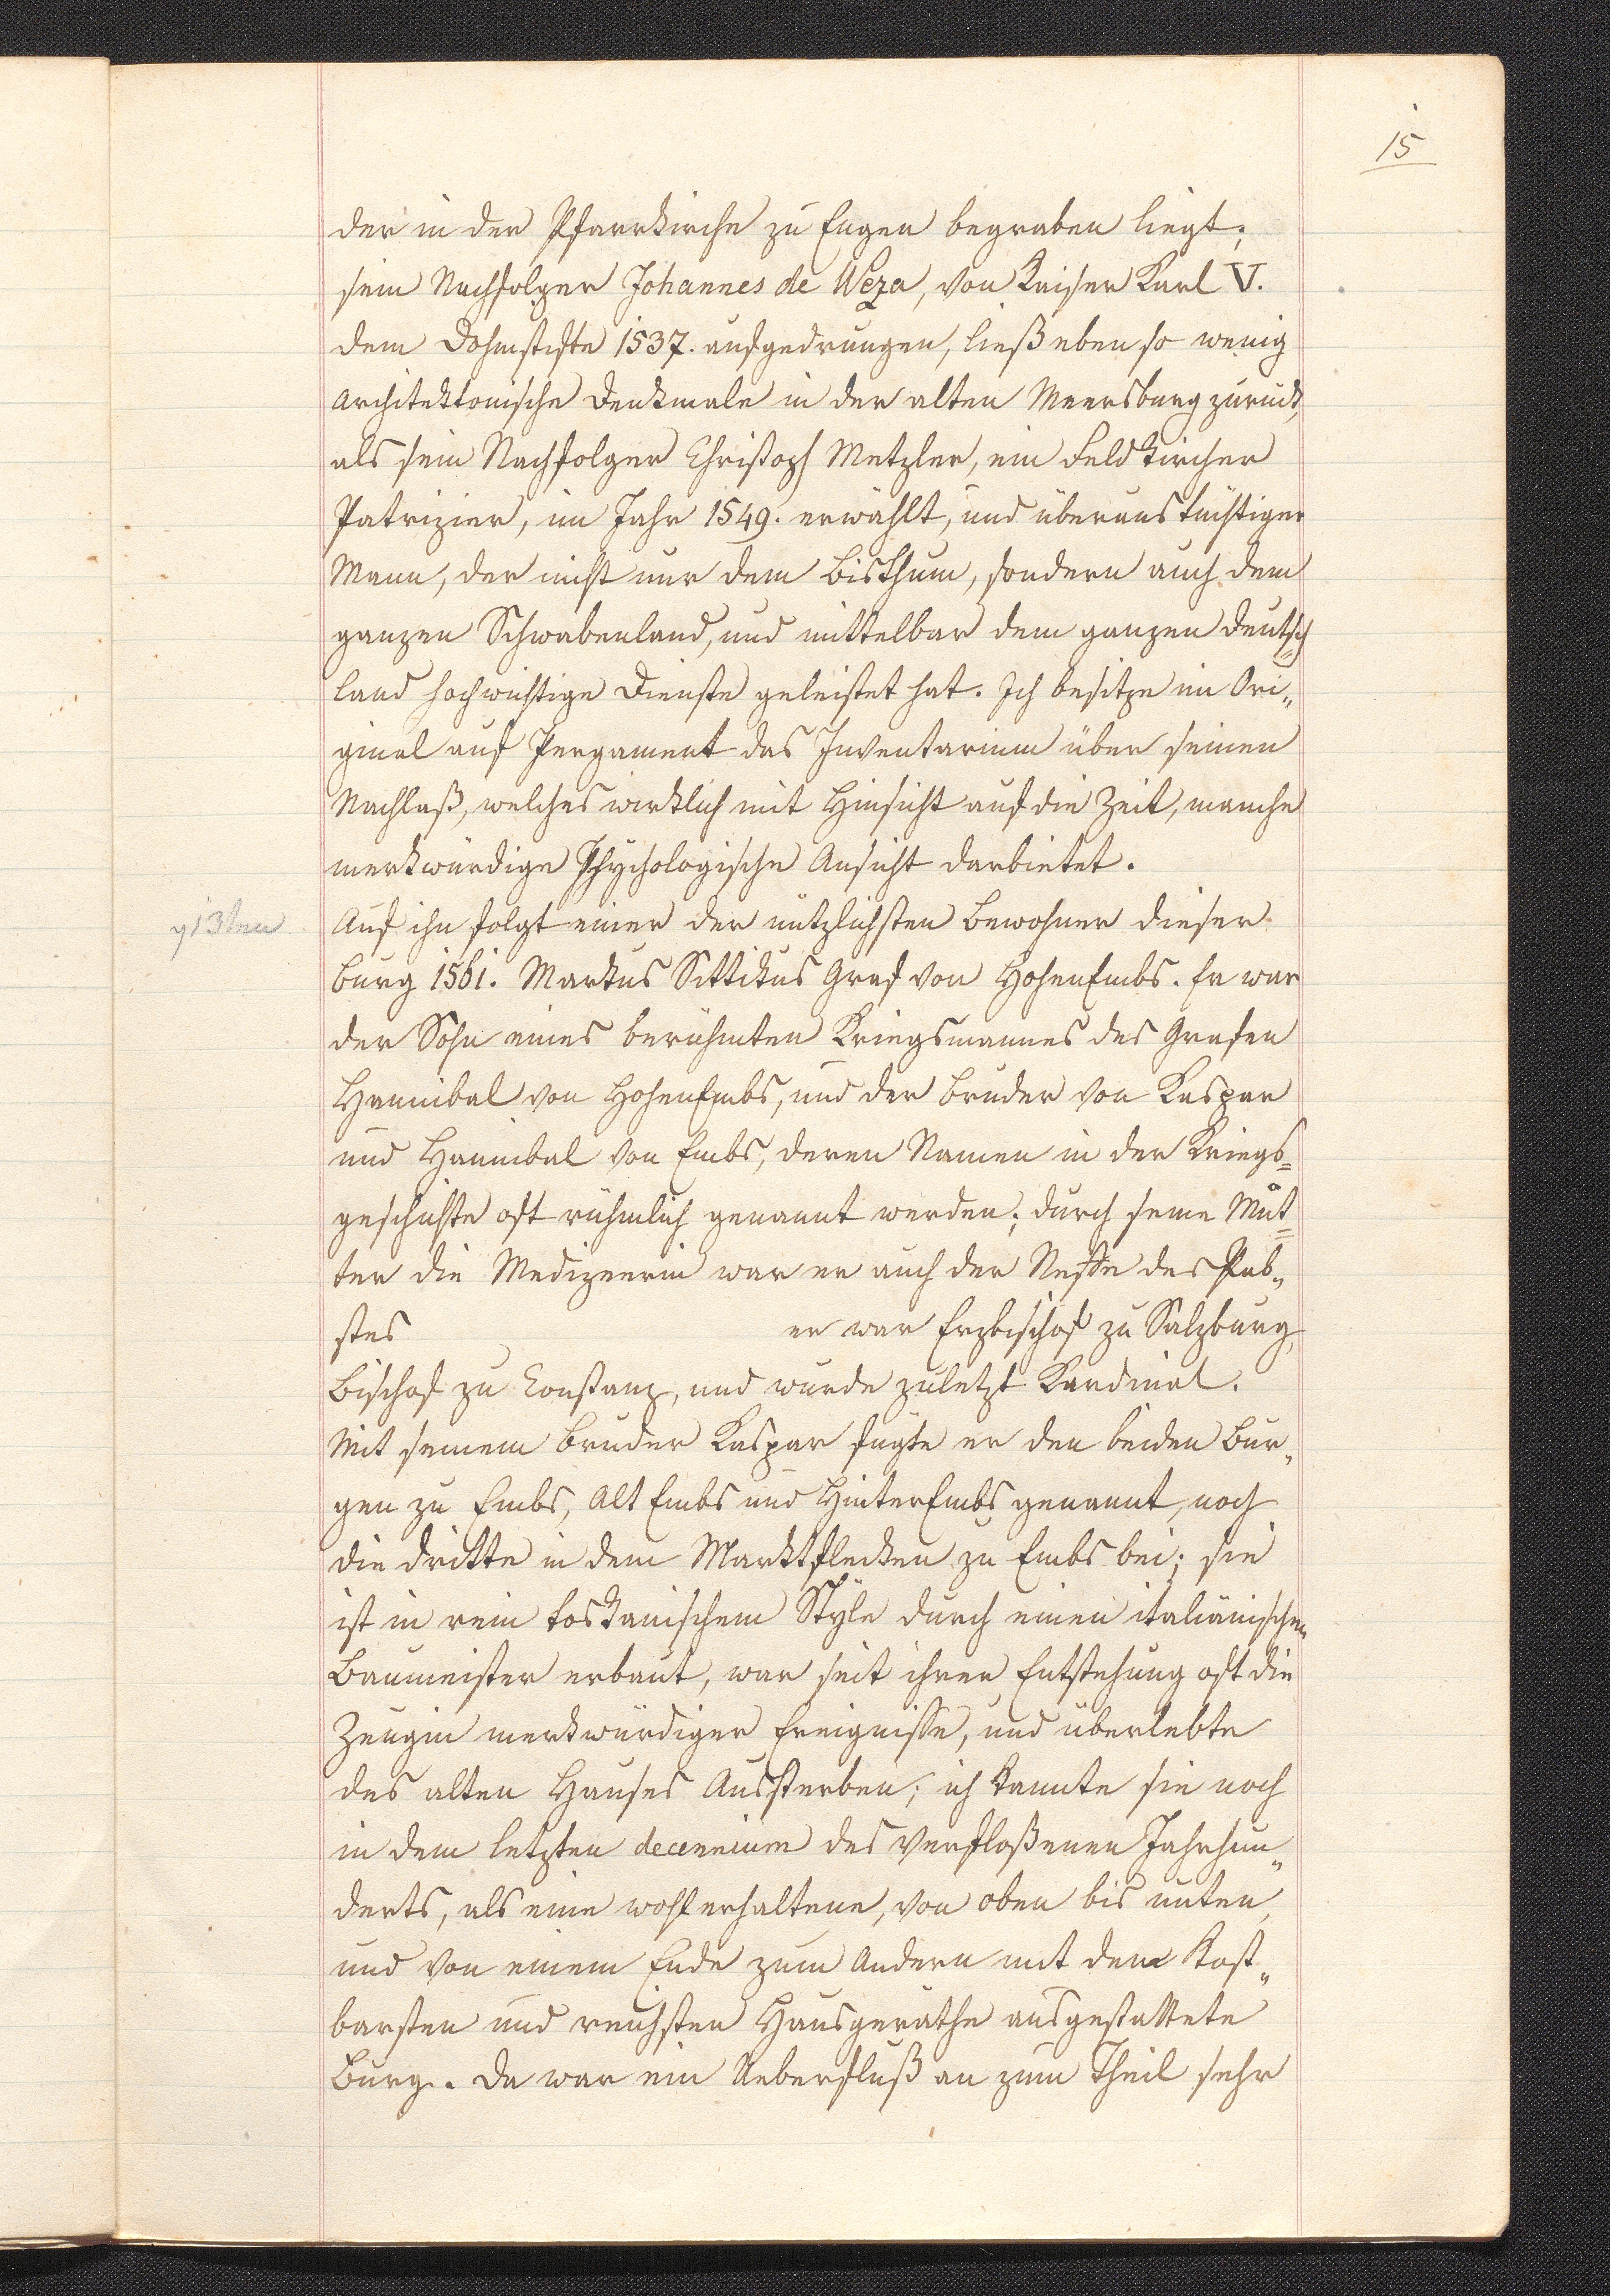 15
der in der Pfarrkirche zu Engen begraben liegt;
sein Nachfolger Johannes de Weza, von Kaiser Karl V.
dem Dohmstifte 1537. aufgedrungen, ließ eben so wenig
architektonische Denkmale in der alten Meersburg zurück,
als sein Nachfolger Christoph Metzler, ein Feldkircher
Patrizier, im Jahr 1549. erwählt, und überaus tüchtiger
Mann, der nicht nur dem Bisthum, sondern auch dem
ganzen Schwabenland, und mittelbar dem ganzen Deutsch
land hochwichtige Dienste geleistet hat. Ich besitze im Ori„
ginal auf Pergament das Inventarium über seinen
Nachlaß, welches wirklich mit Hinsicht auf die Zeit, manche
merkwürdige Phychologische Ansicht darbietet.
Auf ihn folgt einer der nützlichsten Bewohner dieser
Burg 1561. Markus Sittikus Graf von HohenEmbs. Er war
der Sohn eines berühmten Kriegsmannes des Grafen
Hannibal von HohenEmbs, und der Bruder von Kaspar
und Hannibal von Embs, deren Namen in der Kriegs=
geschichte oft rühmlich genannt werden; durch seine Mut=
ter die Medizeerin war er auch der Neffe des Pab„
stes er war Erzbischof zu Salzburg,
Bischof zu Constanz, und wurde zuletzt Kardinal.
Mit seinem Bruder Kaspar fügte er den beiden Bur„
gen zu Embs, Alt Embs und HinterEmbs genannt, noch
die dritte in dem Marktflecken zu Embs bei; sie
ist in rein toskanischem Style durch einen italiänischen
Baumeister erbaut, war seit ihrer Entstehung oft die
Zeugin merkwürdiger Ereignisse, und überlebte
des alten Hauses Aussterben; ich kannte sie noch
in dem letzten decennium des verfloßenen Jahrhun„
derts, als eine wohl erhaltene, von oben bis unten,
und von einem Ende zum Andern mit dem Kost„
barsten und reichsten Hausgeräthe ausgestattete
Burg. Da war ein Ueberfluß an zum Theil sehr